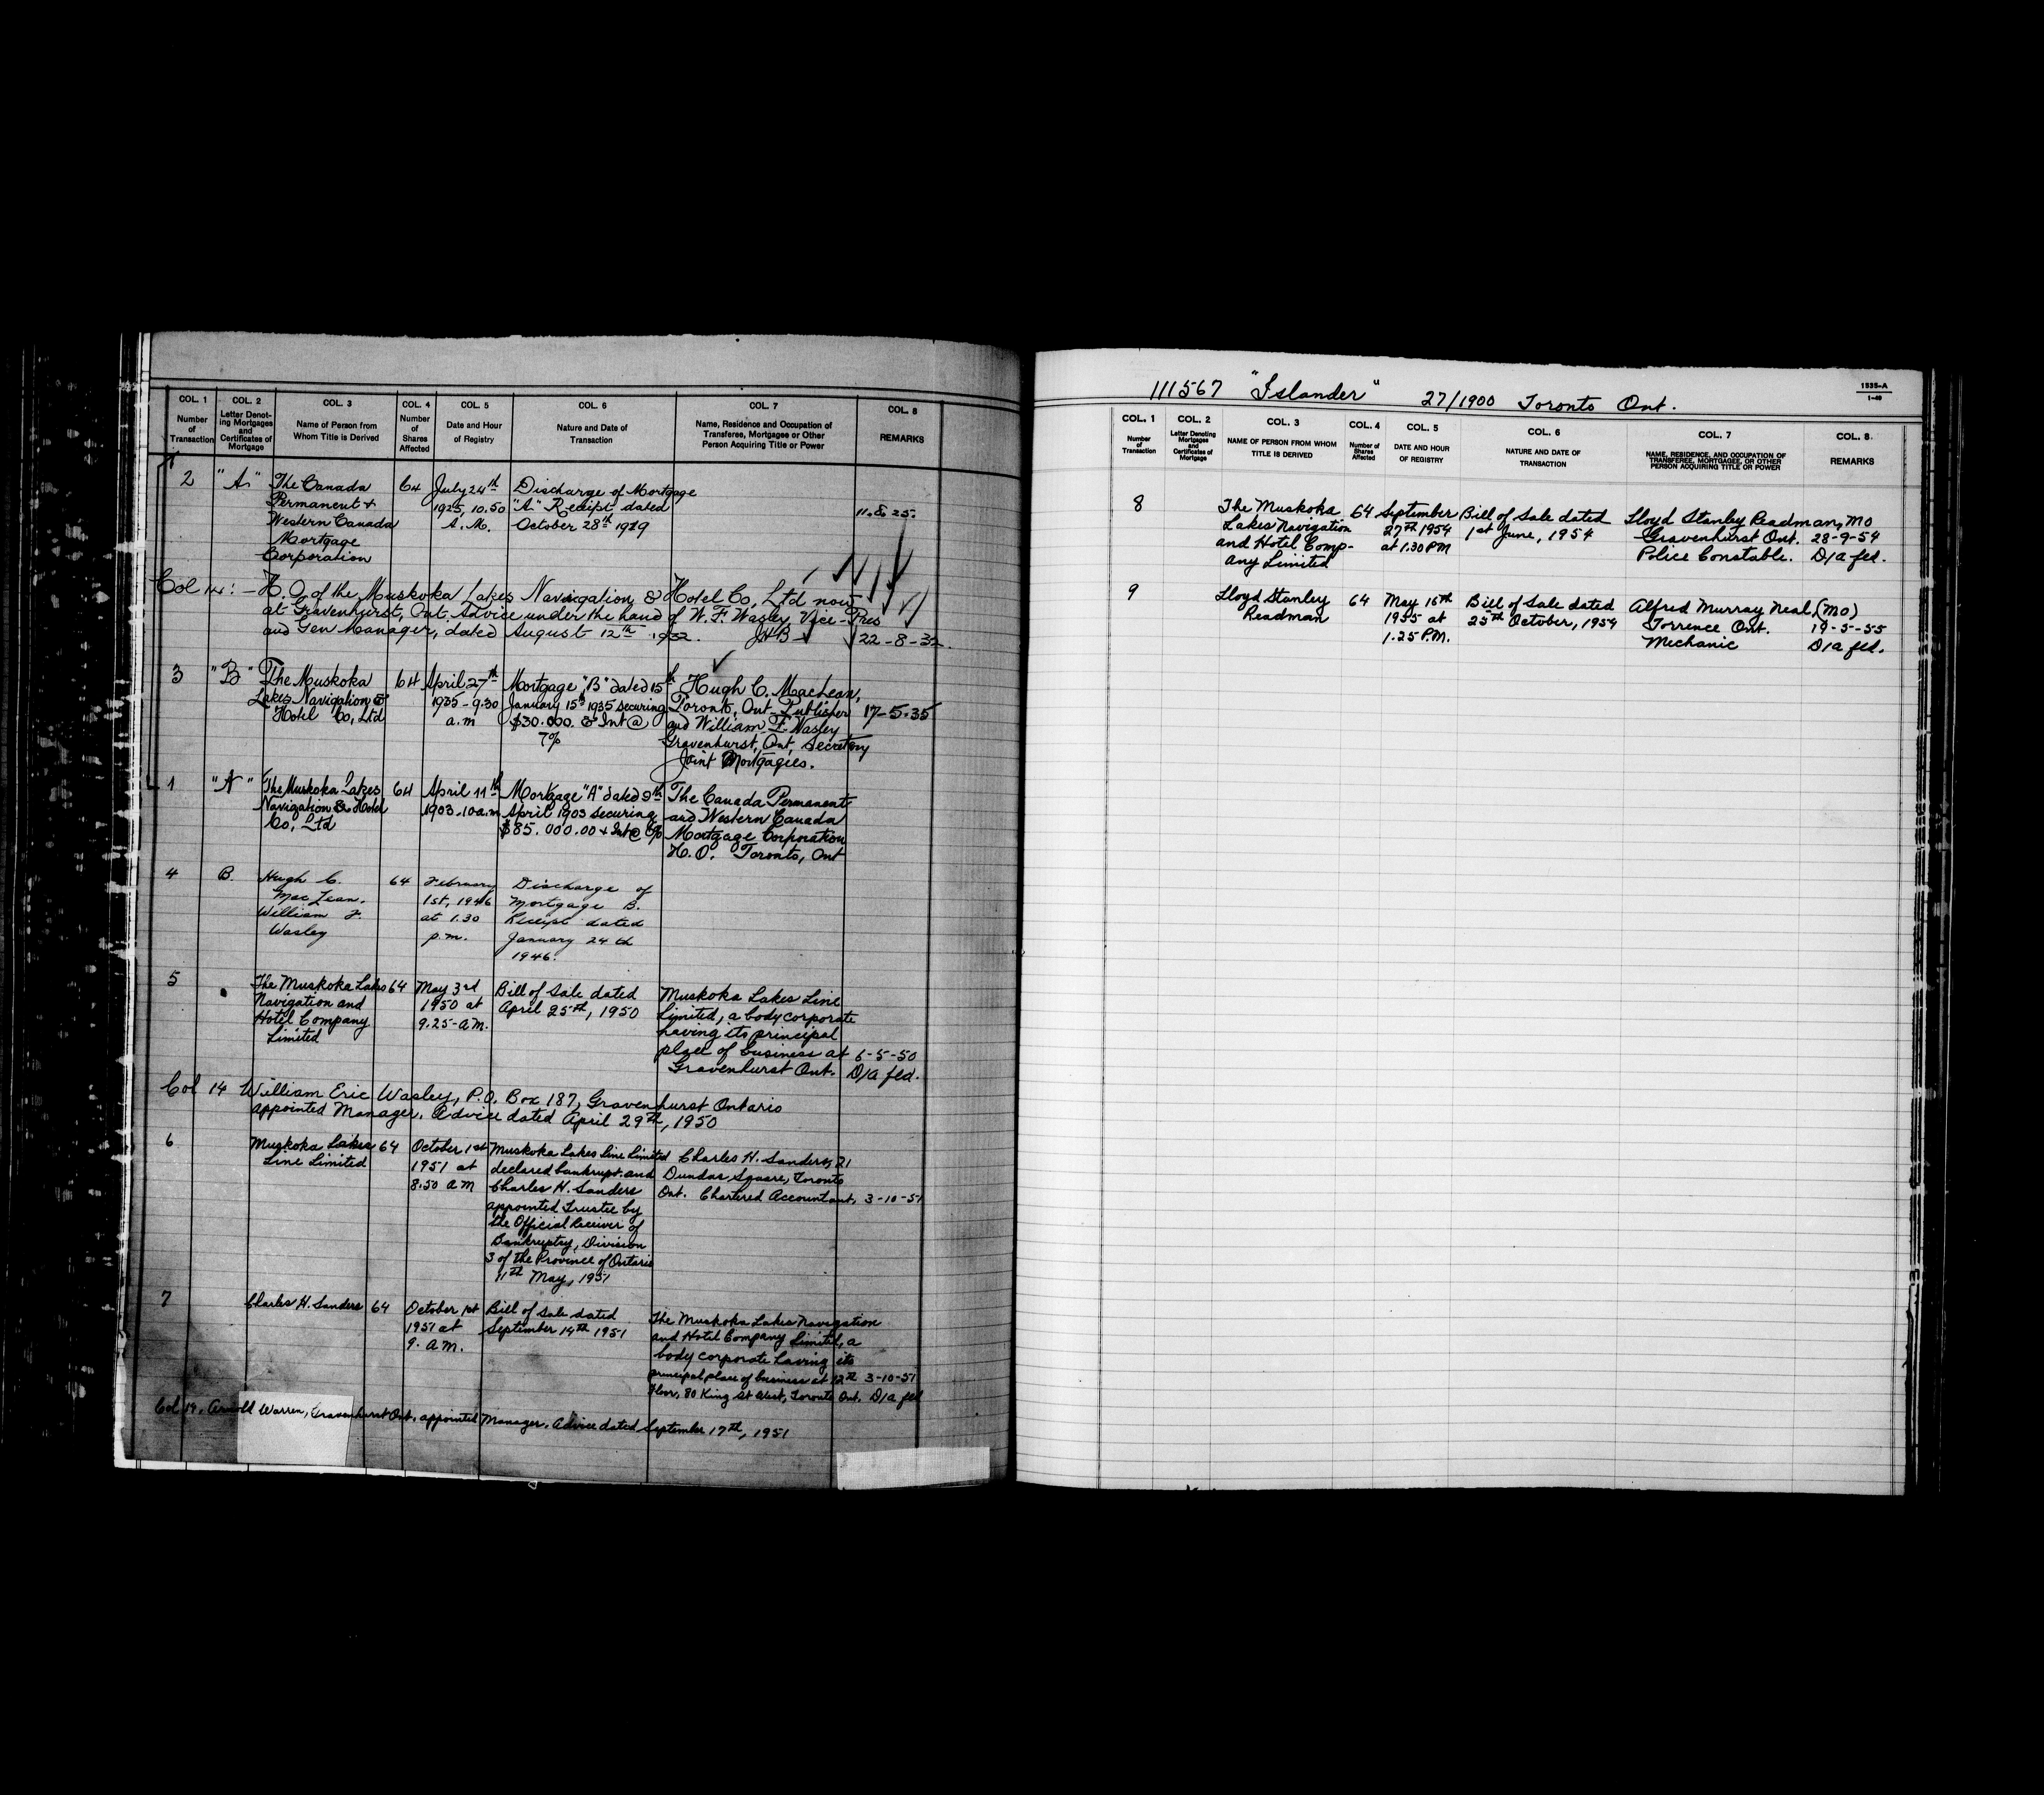 COL. 1 COL. 2 COL. 3 COL. 4 COL. 5 COL. 6 COL. 7 COL. 8
Number of Transaction
Letter Denoting Mortgages and Certificates of Mortgage
Name of Person from Whom Title is Derived
Number of Shares Affected
Date and Hour of Registry
Nature and Date of Transaction
Name, Residence and Occupation of Transferee, Mortgages or Other Person Acquiring Title or Power
REMARKS
2 "A" The Canada 64 July 24th Discharge of Mortgage
Permanent & 1925, 10.50 "A" Receipt dated 11.8.25.
Western Canada A.M. October 28th 1919
Mortgage
Corporation
Col 14: - H.O. of the Muskoka Lakes Navigation & Hotel Co, Ltd now
at Gravenhurst, Ont. Advice under the hand of W. F. Wasley, Vice-Pres
and Gen Manager, dated August 12th 1932. 22-8-32.
3 "B" The Muskoka 64 April 27th Mortgage "B" dated 15th Hugh C. MacLean,
Lakes Navigation & 1935-9.30 January 15th 1935 securing Toronto, Ont. Publisher 17-5-35
Hotel Co, Ltd a.m $30.000. & Int @ and William F. Wasley
7% Gravenhurst, Ont, Secretary
Joint Mortgagees.
1 "A" The Muskoka Lakes 64 April 11th Mortgage "A" dated 9th The Canada Permanent
Navigation & Hotel 1903-10 a.m April 1903 securing and Western Canada
Co, Ltd $85.000.00 & Int @ 6% Mortgage Corporation
H.O. Toronto, Ont
4 B. Hugh C. 64 February Discharge of
MacLean. 1st, 1946 Mortgage B.
William F. at 1.30 Receipt dated
Wasley p.m. January 24th
1946.
5 The Muskoka Lakes 64 May 3rd Bill of Sale dated Muskoka Lakes Line
Navigation and 1950 at April 25th, 1950 Limited, a body corporate
Hotel Company 9.25-A.M. having its principal
Limited place of business at 6-5-50
Gravenhurst Ont. D/A fld.
Col 14 William Eric Wasley, P.O. Box 187, Gravenhurst Ontario
appointed Manager. Advice dated April 29th, 1950
6 Muskoka Lakes 64 October 1st Muskoka Lakes Line Limited Charles H. Sanders, 21
Line Limited 1951 at declared bankrupt and Dundas Square, Toronto
8.50 A.M Charles H. Sanders Ont. Chartered Accountant, 3-10-51
appointed Trustee by
the Official Receiver of
Bankruptcy, Division
3 of the Province of Ontario
11th May, 1951
7 Charles H. Sanders 64 October 1st Bill of Sale dated The Muskoka Lakes Navigation
1951 at September 14th 1951 and Hotel Company Limited, a
9. A.M. body corporate having its
principal place of business at 12th 3-10-51
Floor, 80 King St West, Toronto Ont. D/A fld
Col 14. Arnold Warren, Gravenhurst Ont. appointed Manager. Advice dated September 17th, 1951
111567 "Islander" 27/1900 Toronto Ont.
1535-A
1-49
COL. 1 COL. 2 COL. 3 COL. 4 COL. 5 COL. 6 COL. 7 COL. 8.
Number of Transaction
Letter Denoting Mortgages and Certificates of Mortgage
NAME OF PERSON FROM WHOM TITLE IS DERIVED
Number of Shares Affected
DATE AND HOUR OF REGISTRY
NATURE AND DATE OF TRANSACTION
NAME, RESIDENCE, AND OCCUPATION OF TRANSFEREE, MORTGAGEE, OR OTHER PERSON ACQUIRING TITLE OR POWER
REMARKS
8 The Muskoka 64 September Bill of Sale dated Lloyd Stanley Readman, MO
Lakes Navigation 27th 1954 1st June, 1954 Gravenhurst Ont. 28-9-54
and Hotel Comp- at 1.30 PM Police Constable. D/A fld.
any Limited
9 Lloyd Stanley 64 May 16th Bill of Sale dated Alfred Murray Neal, (MO)
Readman 1955 at 25th October, 1954 Torrence Ont. 19-5-55
1.25 P.M. Mechanic D/A fld.